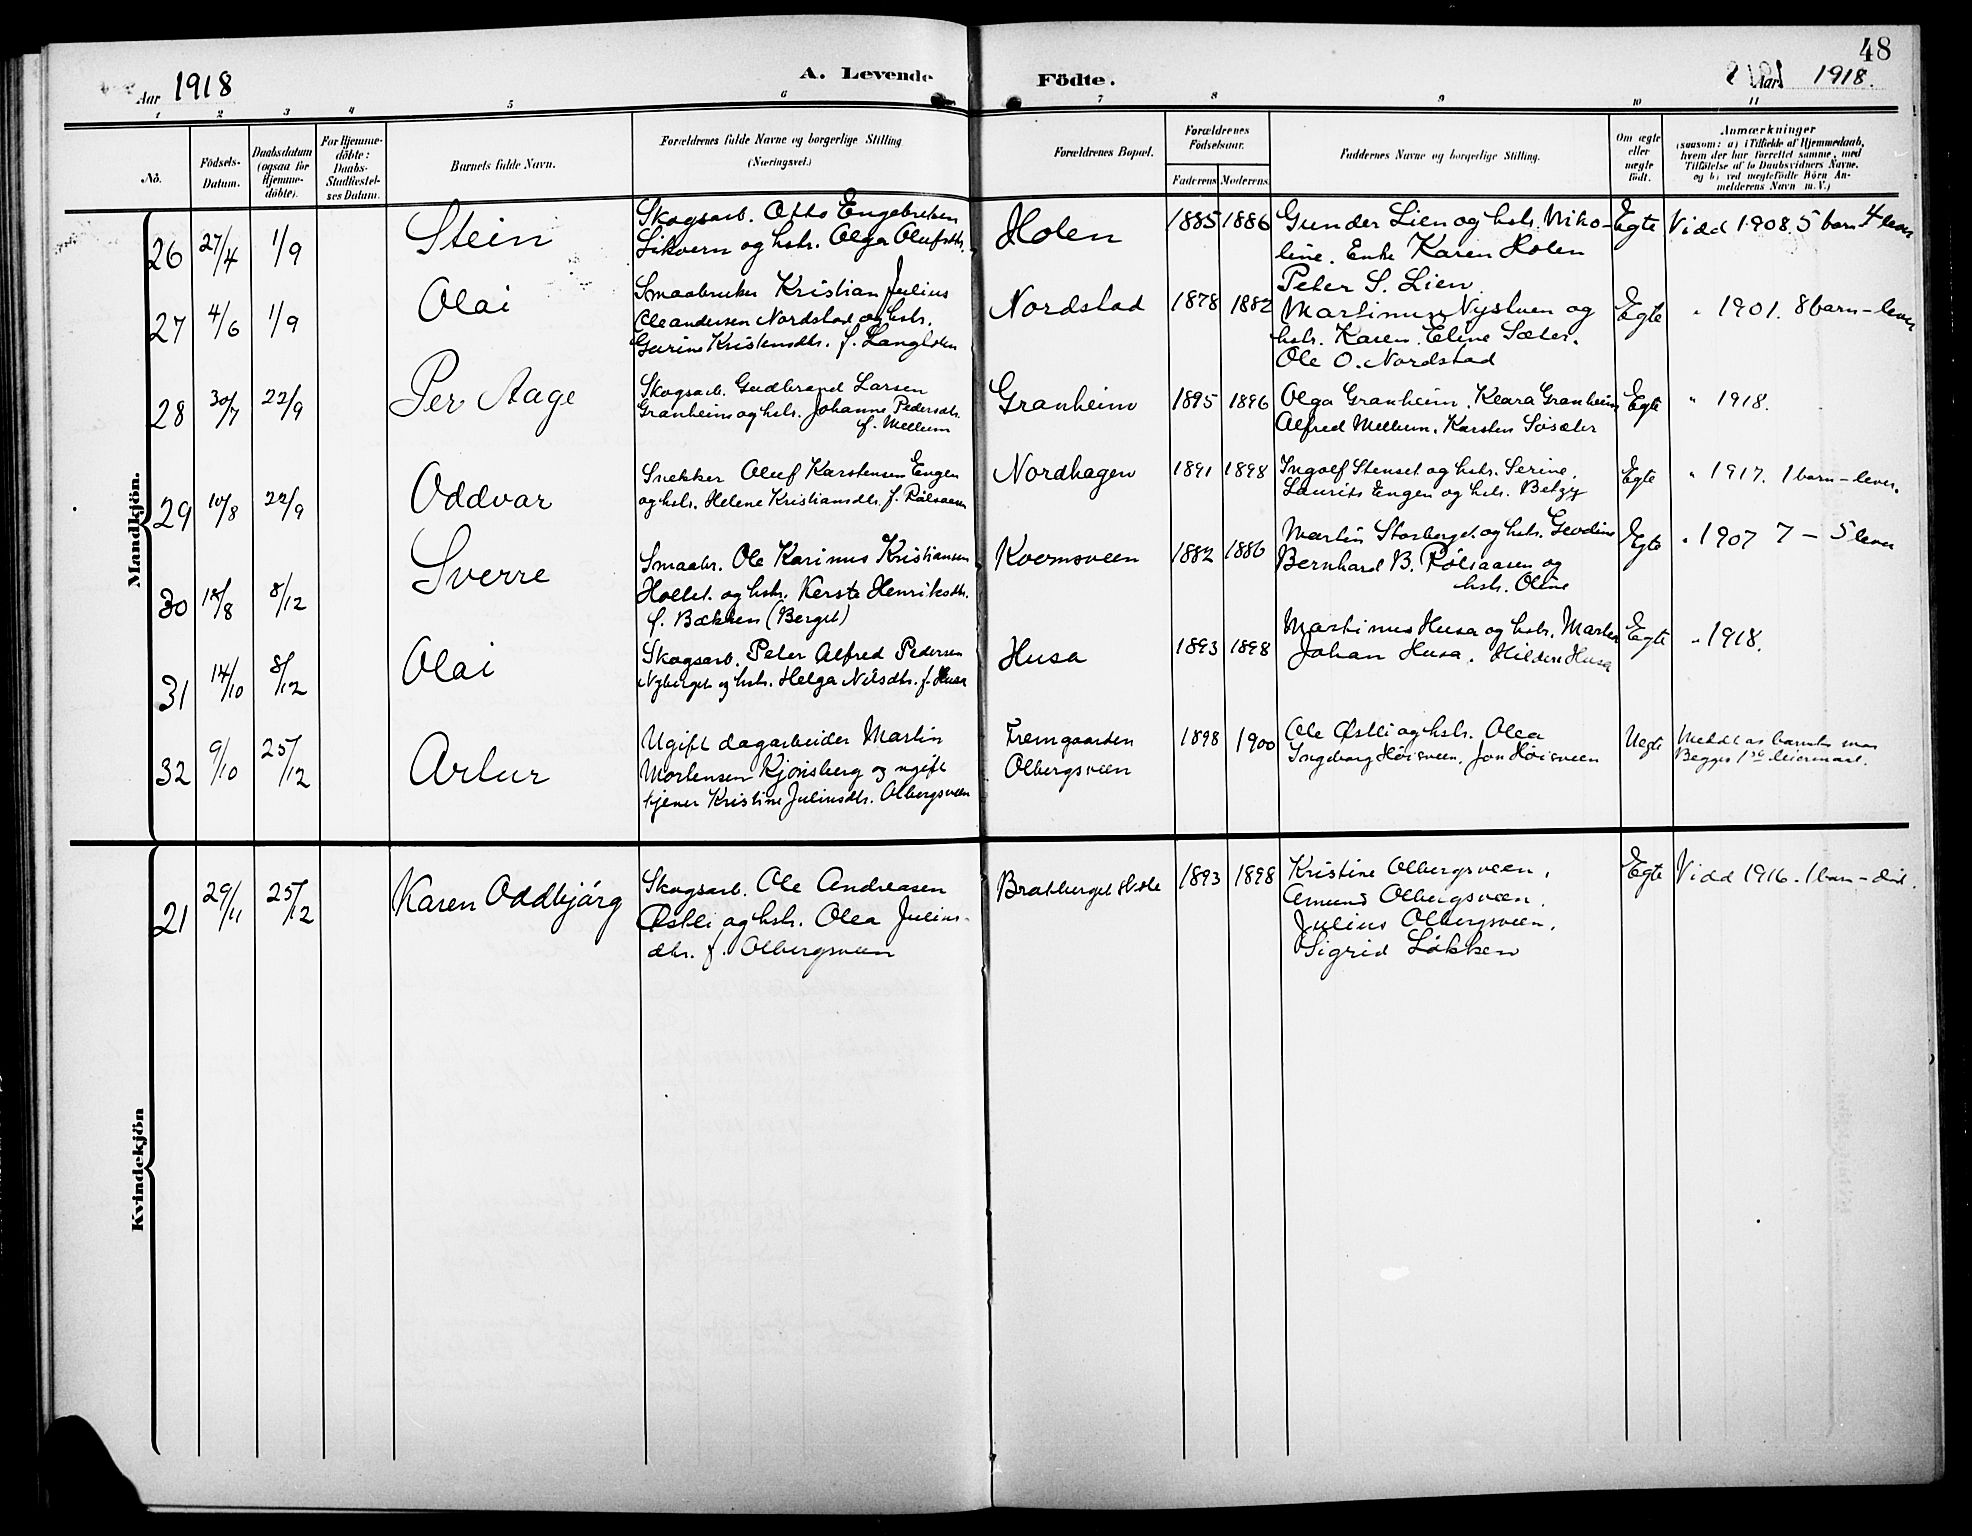 48
Aar 1918
A. Levende Födte.
Aar 1918.
1 2 3 4 5 6 7 8 9 10 11
No.
Födsels-
Datum.
Daabsdatum
(ogsaa for
Hjemme-
döbte).
For Hjemme-
döbte:
Daabs-
Stadfæstel-
ses Datum.
Barnets fulde Navn.
Forældrenes fulde Navne og borgerlige Stilling
(Næringsvei.)
Forældrenes Bopæl.
Forældrenes
Födselsaar.
Faderens Moderens
Faddernes Navne og borgerlige Stilling.
Om ægte
eller
uægte
födt.
Anmærkninger
(saasom: a) i Tilfælde af Hjemmedaab,
hvem der har forrettet samme, med
Tilföielse af to Daabsvidners Navne,
og b) ved uægtefödte Börn An-
melderens Navn m. V.)
Mandkjön.
26 27/4 1/9 Stein
Skogsarb. Otto Engebretsen
og hstr. Olga Olufsdtr.
Holen 1885 1886
Gunder Lien og hstr. Niko-
line. Enke Karen Holen
Peter S. Lien
Egte Vidd 1908. 5 barn 4 lever
27 4/6 1/9 Olai
Smaabruker Kristian Julius
Oleandersen Nordstad og hstr.
Gurine Kristensdtr. f. Langholen
Nordstad 1878 1882
Martinus Nystuen og
hstr. Karen. Eline Sæter.
Ole O. Nordstad
Egte " 1901. 8 barn – lever
28 30/7 22/9 Per Aage
Skogsarb. Gudbrand Larsen
Granheim og hstr. Johanne Pedersdtr.
f. Mellum
Granheim 1895 1896
Olga Granheim, Klara Granheim
Alfred Mellum, Karsten Sösæter
Egte " 1918.
29 10/8 22/9 Oddvar
Snekker Oluf Karstensen Engen
og hstr. Helene Kristiansdtr. f. Rölsaasen
Nordhagen 1891 1898
Ingolf Stenset og hstr. Serine,
Laurits Engen og hstr. Betzy
Egte " 1917. 1 barn – lever.
30 18/8 8/12 Sverre
Smaabr. Ole Karinus Kristiansen
Hollet. og hstr. Kerste Henriksdtr.
f. Bækken (Berget)
Kvernsveen 1882 1886
Martin Storberget og hstr. Gudine
Bernhard B. Rölsaasen og
hstr. Oline
Egte " 1907 7 – 5 lever
31 14/10 8/12 Olai
Skogsarb. Peter Alfred Pedersen
Nyberget og hstr. Helga Nilsdtr. f. Husa
Husa 1893 1898
Martinus Husa og hstr. Marten
Johan Husa. Hildur Husa
Egte " 1918.
32 9/10 25/12 Artur
Ugift dagarbeider Martin
Mortensen Kjønsberg og ugift
tjener Kristine Juliusdtr. Olbergsveen
Fremgaarden
Olbergsveen
1898 1900
Ole Østli og hstr. Olea
Ingeborg Høisveen, Jon Høisveen
Uegte
Meddt as barnets mor
Begges 1ste leiermaal.
Kvindekjön
21 29/11 25/12 Karen Oddbjörg
Skogsarb. Ole Andreasen
Østli og hstr. Olea Julius-
dtr. f. Olbergsveen
Bratberget 1893 1898
Kristine Olbergsveen,
Amund Olbergsveen,
Julius Olbergsveen,
Sigrid Løkken
Egte Vidd 1916. 1 barn – död.